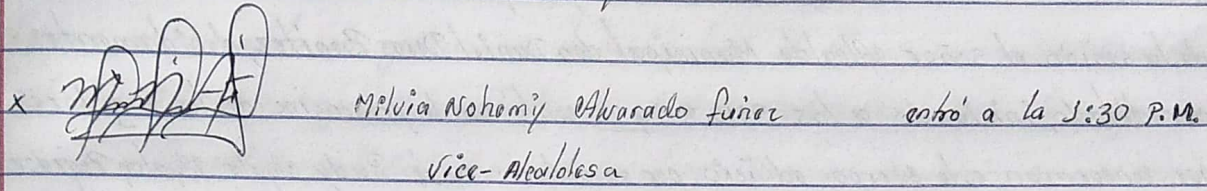 x Melvia Nohemiy Alvarado funez entró a la 1:30 P.M.
Vice-Alcaldesa